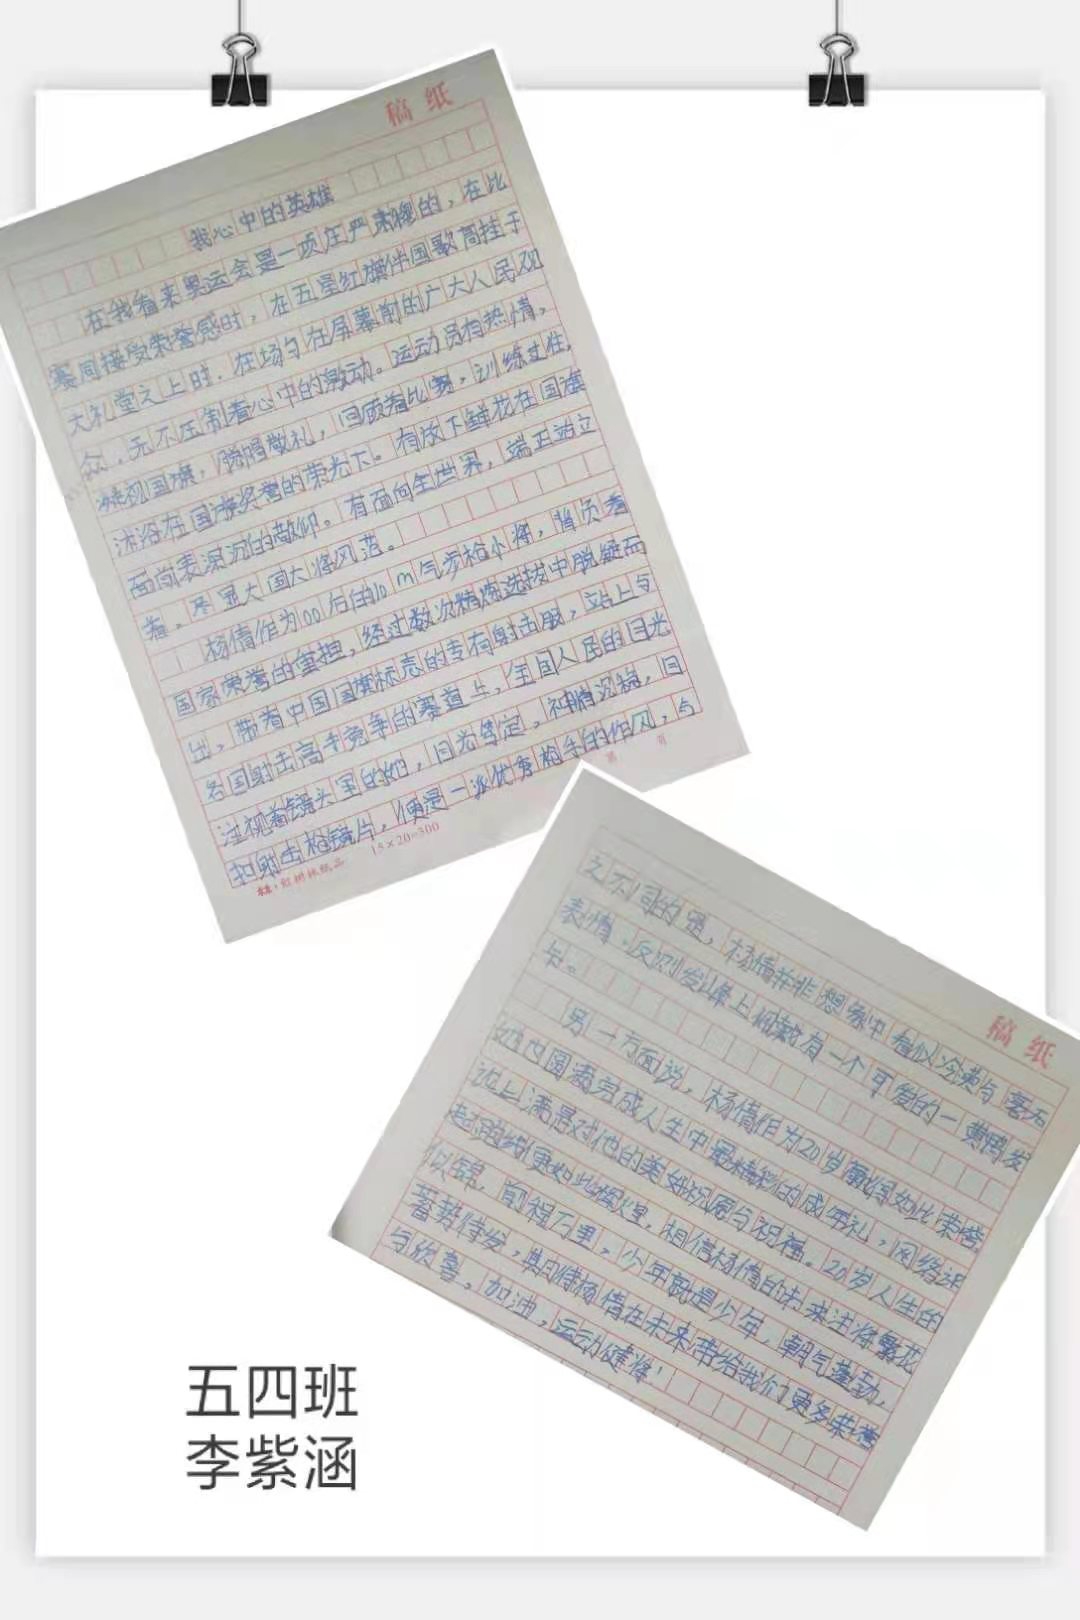 稿纸
我心中的英雄
在我看来奥运会是一项庄严肃穆的,在比
赛同接受荣誉感时,在五星红旗伴国歌高挂于
大礼堂之上时.在场与在屏幕前的广大人民观
众.无不压制着心中的激动。运动员有热情,
凝视国旗,脱帽敬礼,回顾着比赛,训练过往,
沐浴在国旗奖誉的荣光下。有放下鲜花在国旗
面前表深沉的敬仰。有面向全世界,端正站立
着。尽显大国大将风范。
杨倩作为00后的10m气步枪小将,背负着
国家荣誉的重担,经过数次精炼选拔中脱疑而
出,带着中国国旗标志的专有射击服,站上与
各国射击高手竞争的赛道上,全国人民的目光
注视着镜头里的她,目光笃定,神情沉稳,日
扣射击枪镜片,便是一派优秀枪手的作风,与
红树林纸品 15×20=300 第 页
稿纸
之不同的是,杨倩并非想象中看似冷漠与毫无
表情.反则发峰上佩戴有一个可爱的一黄鸭发
卡。
另一方面说,杨倩作为20岁赢得如此荣誉,
如心圆满完成人生中最精彩的成年礼,网络评
论上满是对他的美好祝愿与祝福。20岁人生的
起跑线便如此烟火星,相信杨倩的未来注将繁花
似锦,前程万里。少年就是少年,朝气蓬勃,
蓄势待发,期待杨倩在未来带给我们更多荣誉
与欣喜,加油,运动健将!
五四班
李紫涵